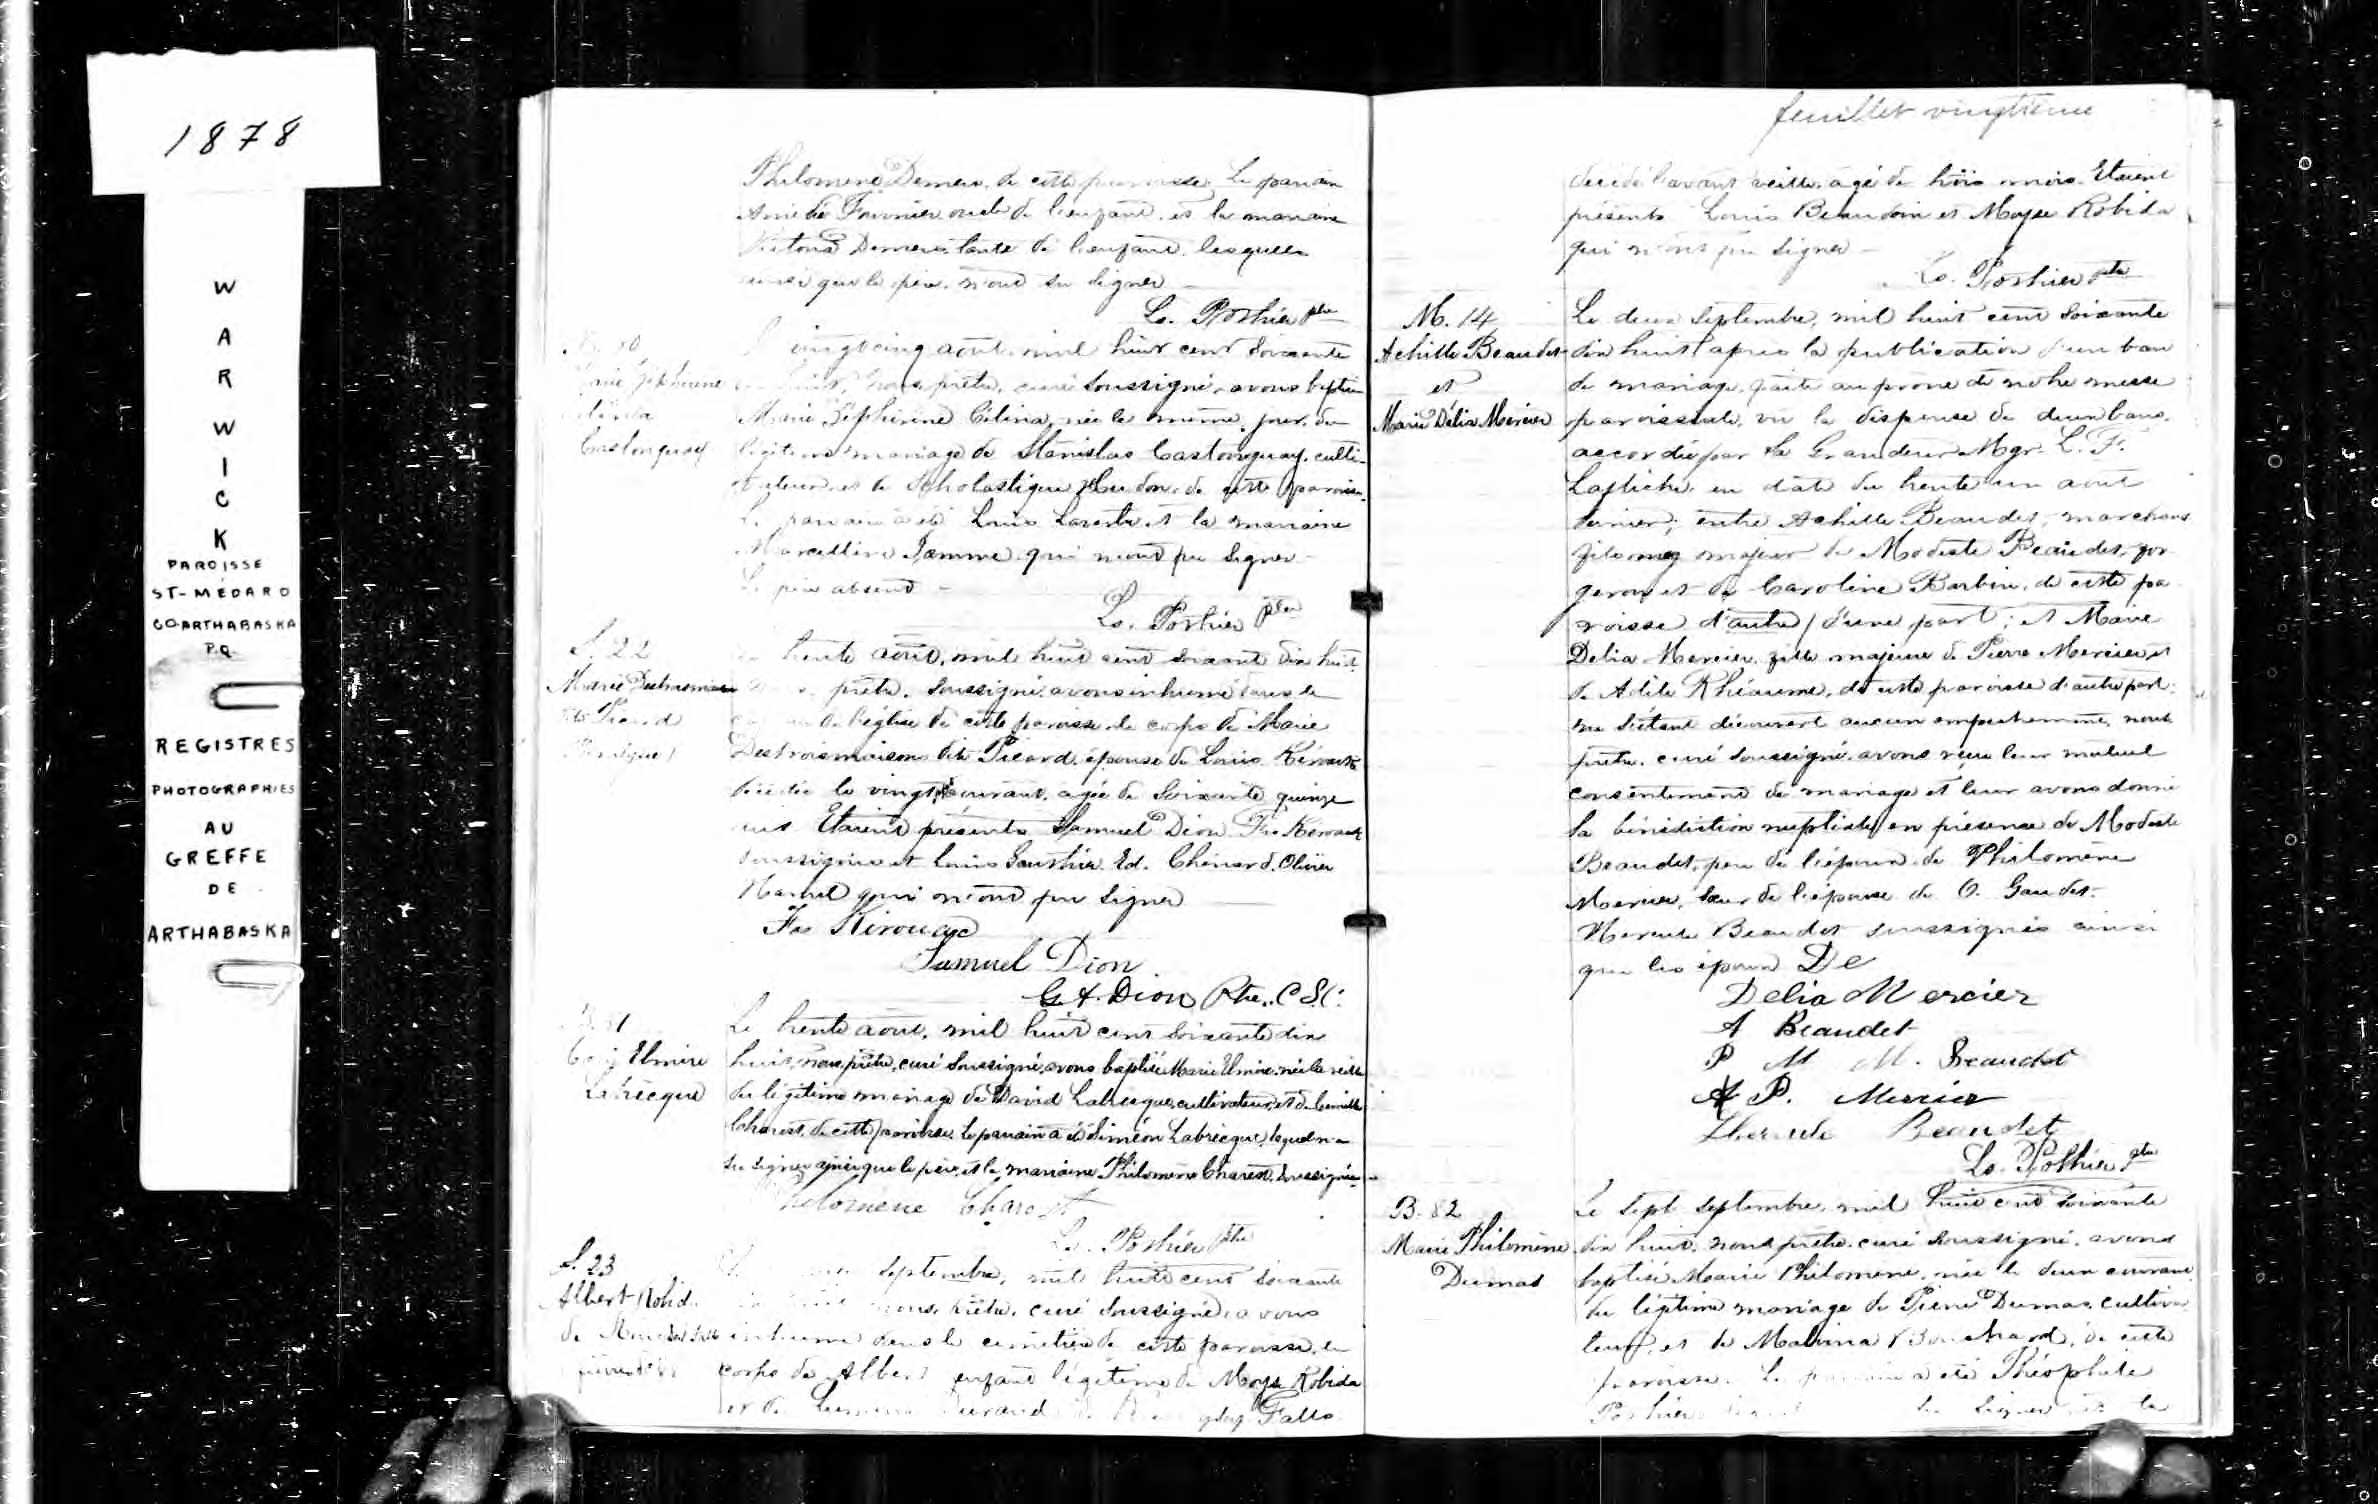 1878
W
A
R
W
I
C
K
PAROISSE
ST-MÉDARD
CO-ARTHABASKA
P.Q.
REGISTRES
PHOTOGRAPHIES
AU
GREFFE
DE
ARTHABASKA
Philomène Demers, de cette paroisse. Le parrain
Fournier oncle de l'enfant et la marraine
Demers tante de l'enfant, lesquels
ainsi que le père n'ont su signer
Ls. Pothier ptre
Castonguay
vingt cinq août, mil huit cent soixante
prêtre, curé soussigné, avons baptisé
Marie Zéphirine Célina, née le même jour, du
légitime mariage de Stanislas Castonguay, culti-
vateur, et de Scholastique Hudon, de cette paroisse.
Le parrain a été Louis et la marraine
Marcelline qui n'ont pu signer
Le père absent
Ls. Pothier ptre
S. 22
Marie Destroismaisons
dite Picard
trente août, mil huit cent soixante dix huit
prêtre, soussigné, avons inhumé dans le
de l'église de cette paroisse, le corps de Marie
Destroismaisons dite Picard, épouse de Louis
décédée le vingt courant, agée de soixante quinze
ans Etaient présents Samuel Dion Frs
soussignés et Louis Gauthier, Ed. Chenard, Olivier
Hamel qui n'ont pu signer
Frs Kirouac
Samuel Dion
G. A. Dion Ptre. C S.C.
Elmire
Labrecque
Le trente août, mil huit cent soixante dix
huit, nous, prêtre, curé soussigné, avons baptisé Marie Elmire, née la veille
du légitime mariage de David Labrecque, cultivateur, et de
Charest, de cette paroisse. Le parrain a été Siméon Labrecque, lequel n'a
su signer ainsi que le père, et la marraine Philomène Charest, soussignée
Philomene Charest
Ls. Pothier ptre
S. 23
Albert Robida
septembre, mil huit cent soixante
nous, prêtre, curé soussigné, avons
inhumé dans le cimetière de cette paroisse, le
corps de Albert enfant légitime de Moyse Robida
et de Durand Falls
feuillet vingtième
décédé l'avant veille, agé de trois mois. Etaient
présents Louis Beaudoin et Moyse Robida
qui n'ont pu signer
Ls. Pothier ptre
M. 14
Achille Beaudet
et
Marie Délia Mercier
Le deux septembre, mil huit cent soixante
dix huit, après la publication d'un ban
de mariage, faite au prone de notre messe
paroissiale, vu la dispense de deux bans,
accordée par Sa Grandeur Mgr. L. F.
Laflèche en date du trente un août
dernier; entre Achille Beaudet, marchand
fils maj majeur de Modeste Beaudet, for-
geron et de Caroline Barbin, de cette pa-
roisse d'autre / d'une part; et Marie
Delia Mercier, fille majeure de Pierre Mercier, et
de Adèle Rhéaume, de cette paroisse d'autre part;
ne s'étant découvert aucun empêchement, nous
prêtre, curé soussigné, avons reçu leur mutuel
consentement de mariage et leur avons donné
la bénédiction nuptiale en présence de Modeste
Beaudet, père de l'époux, de Philomène
Mercier, sœur de l'épouse de O. Gaudet,
Hercule Beaudet soussignés ainsi
que les époux De
Delia Mercier
A Beaudet
P M M. Beaudet
A P. Mercier
Hercule Beaudet
Ls. Pothier ptre
B. 82
Marie Philomène
Dumas
Le sept septembre, mil huit cent soixante
dix huit, nous, prêtre, curé soussigné, avons
baptisé Marie Philomène, née le deux courant
du légitime mariage de Pierre Dumas, cultiva-
teur, et de Malvina Bouchard, de cette
paroisse. Le parrain a été Théophile
Pothier signer et la